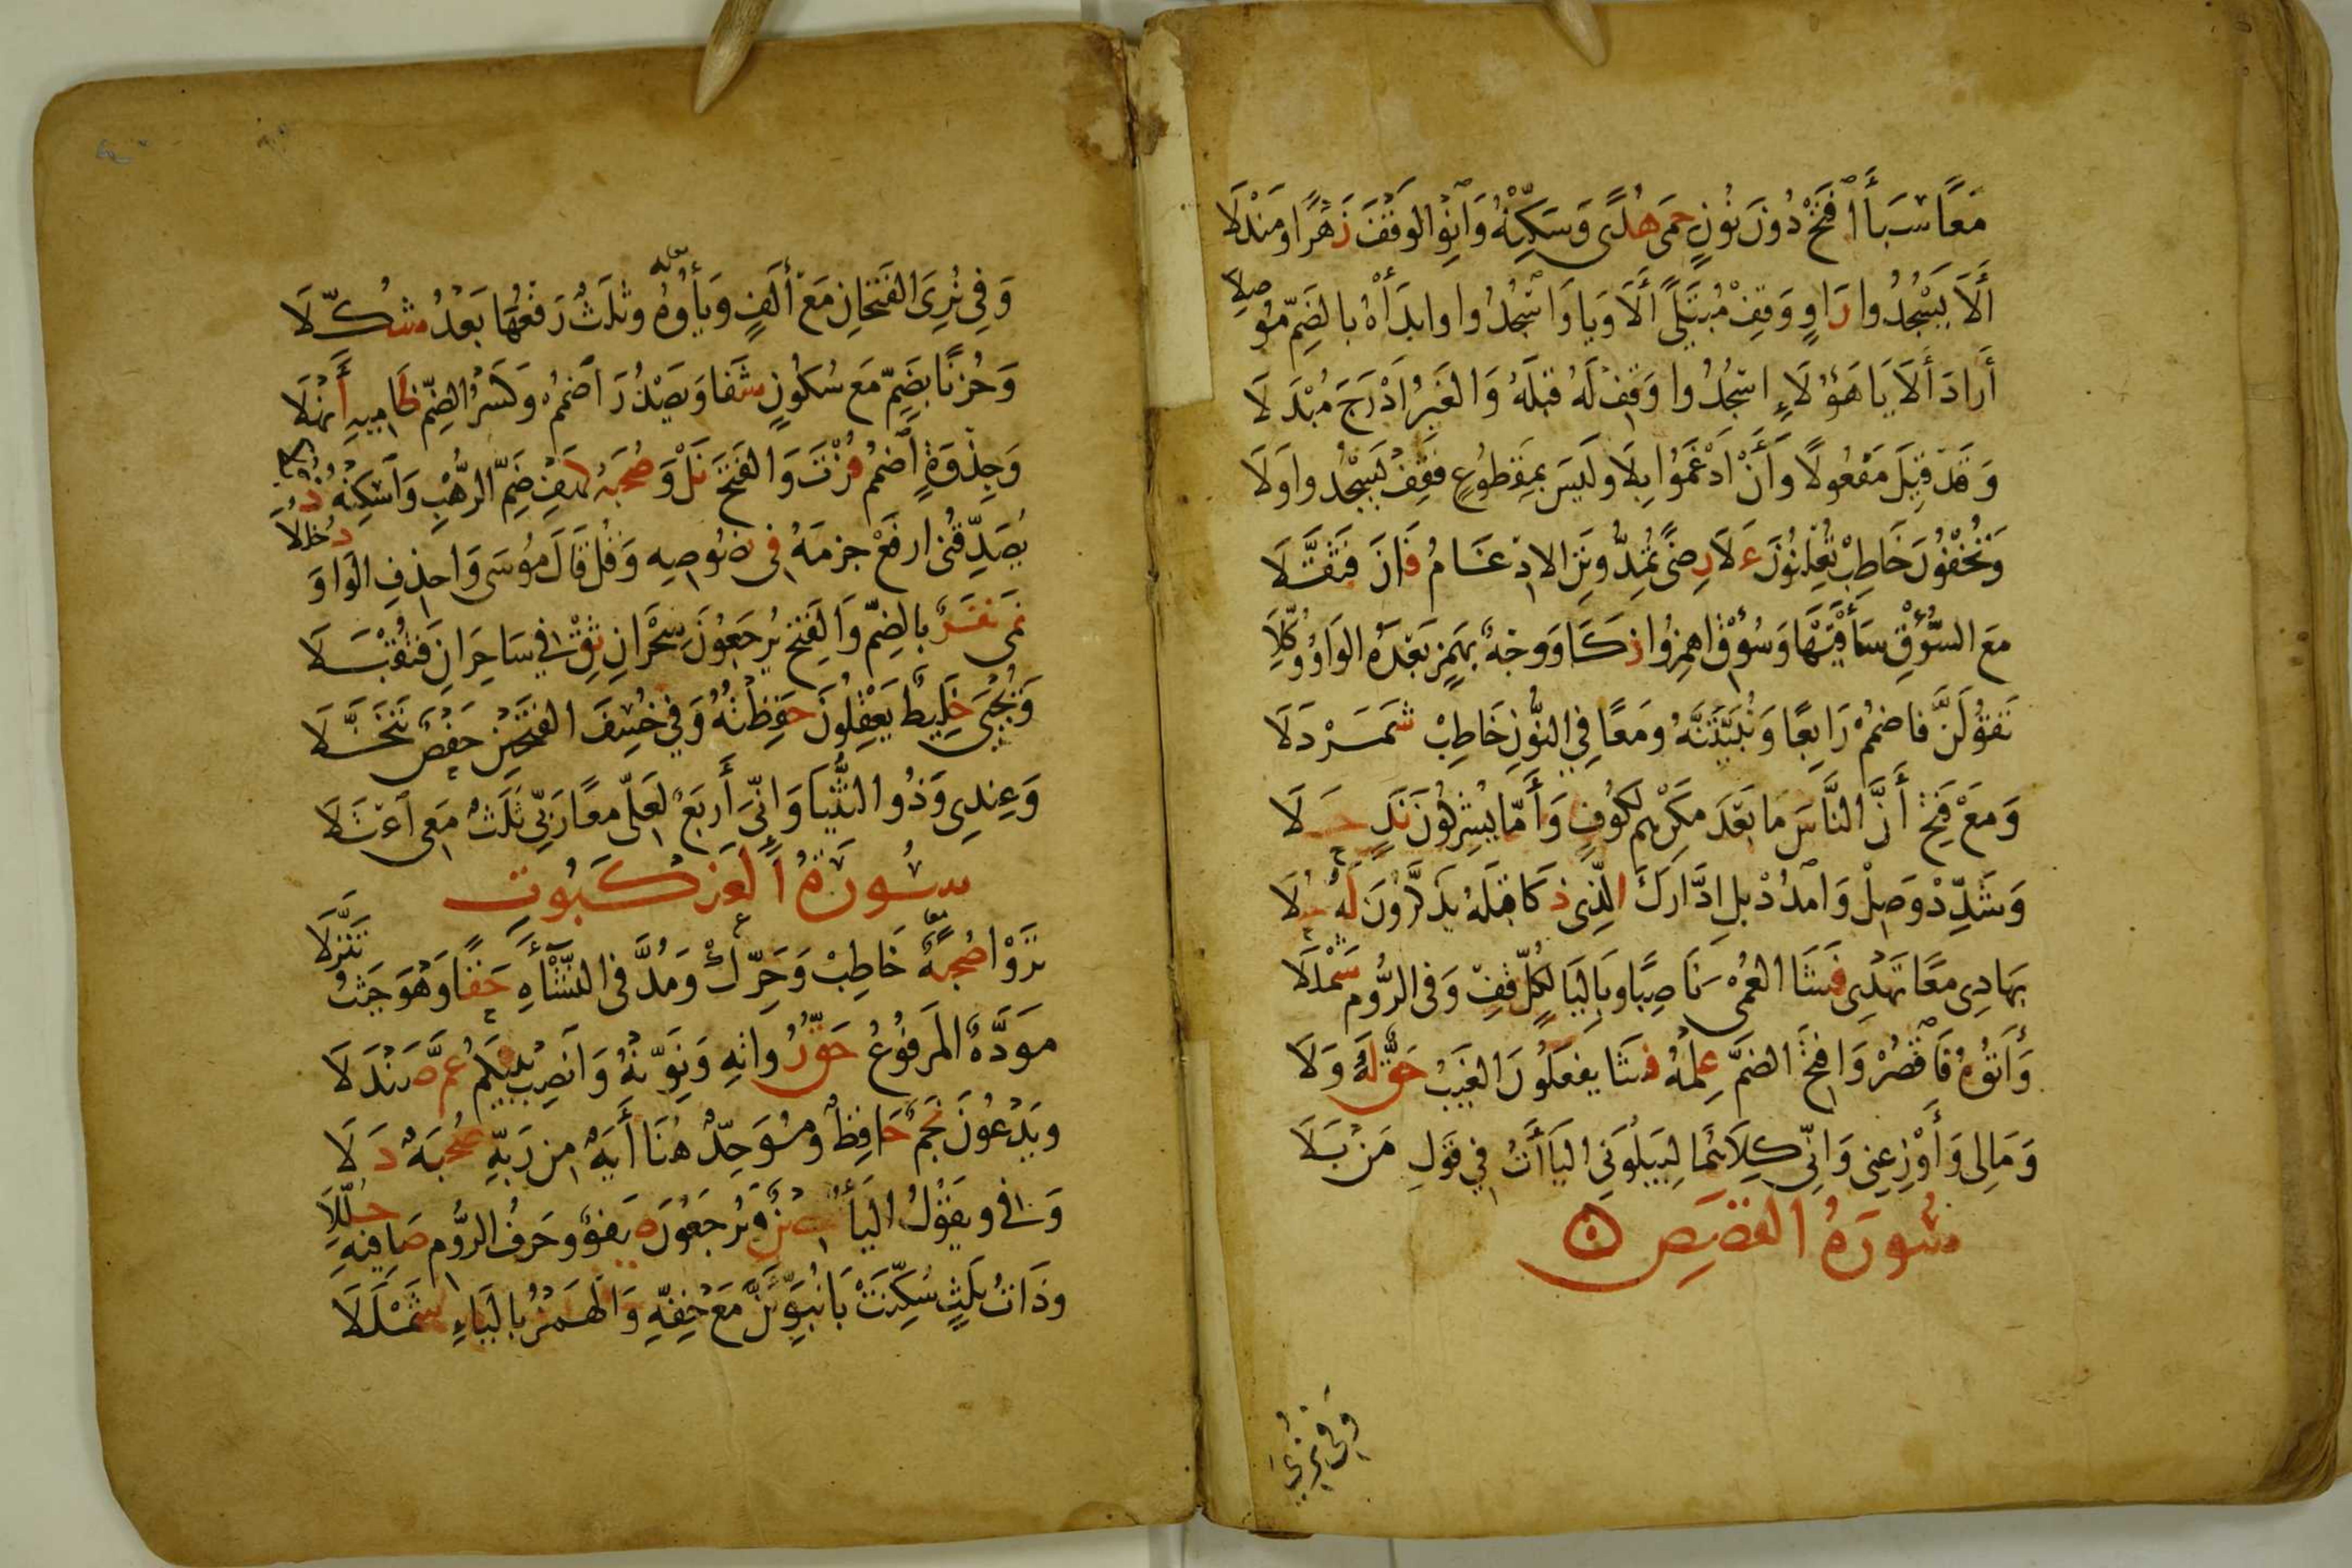 مَعًا سَبَأَ ٱفْتَحْ دُونَ نُونٍ حِمَى هُدًى وَسَكِّنْهُ وَانْوِ الوَقْفَ زَهْرًا وَمَنْدَلَا
أَلَا يَسْجُدُوا رَاوٍ وَقِفْ مُبْتَلًى أَلَا وَيَا وَاسْجُدُوا وابدَأْهُ بالضَمِّ مُوصِلَا
أَرادَ أَلَا يَا هَؤُلَاءِ اسْجُدُوا وَقِفْ لَهُ قَبْلَهُ وَالغَيرُ أَدْرَجَ مُبْدِلَا
وَقَدْ قِيلَ مَفْعُولًا وَأَنْ أَدْغَمُوا بِلَا وَلَيسَ بِمَقْطُوعٍ فَقِفْ يَسْجُدُوا وَلَا
وَتُخْفُونَ خَاطِبْ تُعْلِنُونَ عَلَى رِضًى تُمِدُّونَنِ الادْغَامُ فَازَ فَثَقَّلَا
مَعَ السُّؤْقِ سَاقَيْهَا وَسُؤْقِ اهمِزُوا زَكَا وَوَجْهٌ بِهَمْزٍ بَعْدَهُ الوَاوُ وُكِّلَا
نَقُولَنَّ فَاضْمُمْ رَابِعًا وَنُبَيِّتَنَّهُ وَمَعًا فِي النُّونِ خَاطِبْ شَمَرْدَلَا
وَمَعْ فَتْحِ أَنَّ النَّاسَ مَا بَعْدَ مَكْرِهِم لِكُوفٍ وَأَمَّا يُشْرِكُونَ نَدٍ حَلَا
وَشَدِّدْ وَصِلْ وَامْدُدْ بَلِ ادَّارَكَ الَّذِي ذَكَا قَبْلَهُ يَذَّكَّرُونَ لَهُ حُلَا
بِهَادِى مَعًا تَهْدِى فَشَا العُمْىَ نَاصِبًا وَبِاليَا لِكُلٍّ قِفْ وَفِى الرُّومِ شَمْلَلَا
وَآتُوهُ فَاقْصُرْ وَافتَحِ الضَمَّ عِلْمُهُ فَشَا يَفْعَلُونَ الغَيْبُ حَقٌّ لَهُ وَلَا
وَمَالِى وَأَوْزِعْنِى وَإِنِّى كِلَاهُمَا لِيَبْلُوَنِى اليَاأَتُ فِي قَوْلِ مَنْ بَلَا
سُورَةُ القَصَصِ
وَفِى نُرِىَ
وَفِي نُرِىَ الفَتْحَانِ مَعْ أَلِفٍ وَيَاؤُهُ وثَلَثٌ رَفْعُهَا بَعْدُ شُكِّلَا
وَحُزْنًا بِضَمٍّ مَعْ سُكُونٍ شَفَا وَيَصْدُرَ اضمُمْ وَكَسْرُ الضَمِّ ظَامِيهِ أَنْهَلَا
وَجِذْوَةٍ اضْمُمْ فُزْتَ وَالفَتْحَ نَلْ وَصُحْبَةٌ كَهْفُ ضَمِّ الرَّهْبِ وَاسْكِنْهُ ذُبَّلَا
يُصَدِّقُنِى ارفَعْ جَزمَهُ فِى نُصُوصِهِ وَقُلْ قَالَ مُوسَى وَاحذِفِ الوَاوَ دُخْلُلَا
نَمَى نَفَرٌ بِالضَمِّ وَالفَتْحِ يُرْجَعُونَ سِحْرَانِ ثِقْ فِي سَاحِرَانِ فَتُقْبَلَا
وَيُجْبَى خَلِيطٌ يَعْقِلُونَ حَفِظْتُهُ وَفِي خُسِفَ الفَتْحَيْنِ حَفْصٌ تَنَخَّلَا
وَعِندِى وَذُو الثُّنْيَا وَإِنِّى أَرْبَعٌ لَعَلِّى مَعًا رَبِّى ثَلَثٌ مَعِى اعْتَلَا
سُورَةُ الْعَنْكَبُوتِ
تَرَوْا صُحْبَةٌ خَاطِبْ وَحَرِّكْ وَمُدَّ فِى النَّشَاأَةِ حَقًّا وَهُوَ حَيْثُ تَنَزَّلَا
مَوَدَّةٌ المَرفُوعُ حَقُّ رُواتِهِ وَنَوِّنْهُ وَانْصِبْ بَيْنَكُمْ عَمَّ صَنْدَلَا
وَيَدْعُونَ نَجْمٌ حَافِظٌ وَمُوَحِّدٌ هُنَا أَيَةٌ مِن رَبِّهِ صُحْبَةٌ دَلَا
وَفِي وَيَقُولُ اليَاأُ حِصْنٌ وَيُرْجَعُونَ صَفْوٌ وَحَرفُ الرُّومِ صَافِيهِ حُلِّلَا
وَذَاتُ ثَلَثٍ سُكِّنَتْ بَا نُبَوِّئَنَّ مَعْ خِفِّهِ وَالهَمْزُ بِاليَاءِ شَمْلَلَا